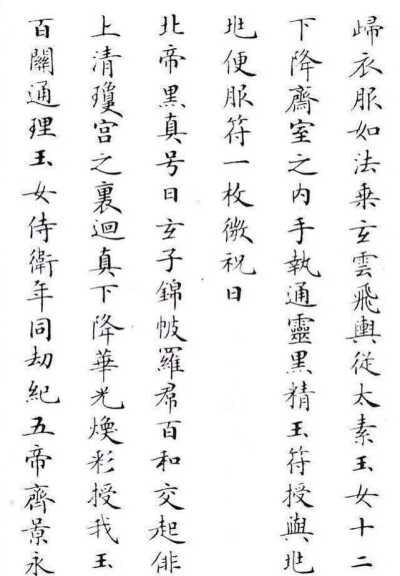 歸衣服如法乘玄雲飛輿從太素玉女十二
下降齋室之内手執通靈黑精玉符授與兆
兆便服符一枚微祝曰
北帝黑真号曰玄子錦帔羅帬百和交起俳
上清瓊宮之裏迴真下降華光煥彩授我玉
百關通理玉女侍衛年同劫紀五帝齊景永